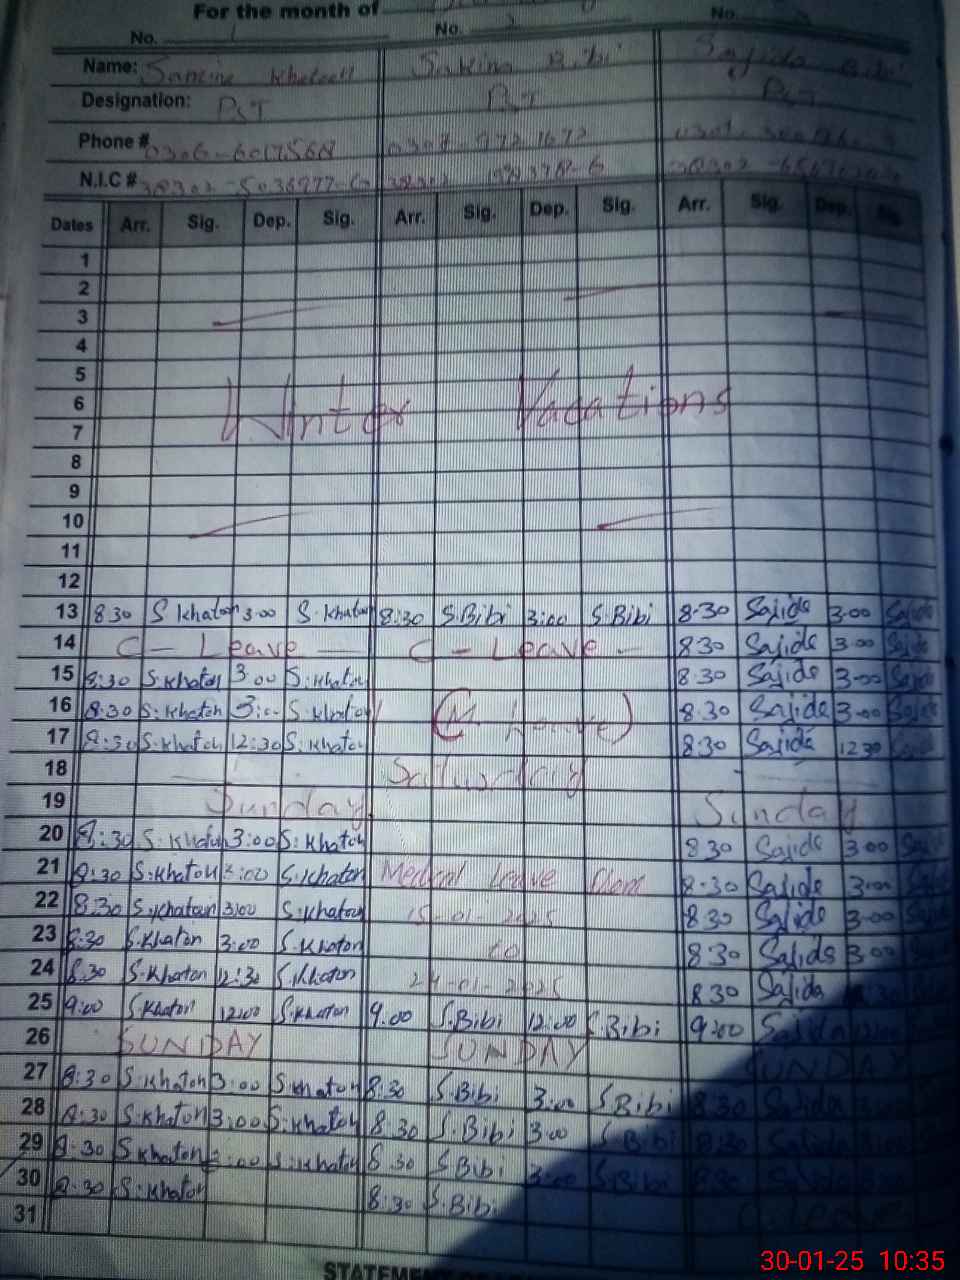 For the month of
No. 1 No. 2 No. 3
Name: Khatoon Sakina Bibi Sajida Bibi
Designation: PST PST PST
Phone #
N.I.C #
Dates Arr. Sig. Dep. Sig. Arr. Sig. Dep. Sig. Arr. Sig. Dep. Sig.
1
2
3
4
5
6 Winter Vacations
7
8
9
10
11
12
13 8 30 S khaton 3:00 S. khaton 8:30 S.Bibi 3:00 S.Bibi 8-30 Sajida 3.00 Sajida
14 C - Leave C - Leave 8 30 Sajida 3.00 Sajida
15 8:30 S.khaton 3:00 S.khaton 8.30 Sajida 3-00 Sajida
16 8.30 S.khaton 3:00 S.khaton (M. Leave) 8.30 Sajida 3-00 Sajida
17 8:30 S.khaton 12:30 S.khaton 8:30 Sajida 12 30
18 Saturday
19 Sunday Sunday
20 8:30 S.khaton 3:00 S.khaton 8 30 Sajida 3 00
21 8:30 S.khaton 3:00 S.khaton Medical Leave from 8-30 Sajida 3:00
22 8:30 S.khatoun 3:00 S.khatoun 15-01-2025 8 30 Sajida 3-00
23 8:30 S.khaton 3:00 S.khaton to 8 30 Sajida 3 00
24 8.30 S.khaton 12:30 S.khaton 24-01-2025 8 30 Sajida
25 9:00 S.khaton 12:00 S.khaton 9.00 S.Bibi 12:00 S.Bibi 9:00 Sajida
26 SUNDAY SUNDAY SUNDAY
27 8:30 S.khaton 3:00 S.khaton 8:30 S.Bibi 3:00 S.Bibi 8 30 Sajida
28 8:30 S.khaton 3:00 S.khaton 8 30 S.Bibi 3:00 S Bibi 8:30 Sajida
29 8:30 S khaton 3:00 S.khaton 8 30 S.Bibi 3:00 S.Bibi 8:30 Sajida
30 8:30 S.khaton 8:30 S.Bibi C.Leave
31
30-01-25 10:35